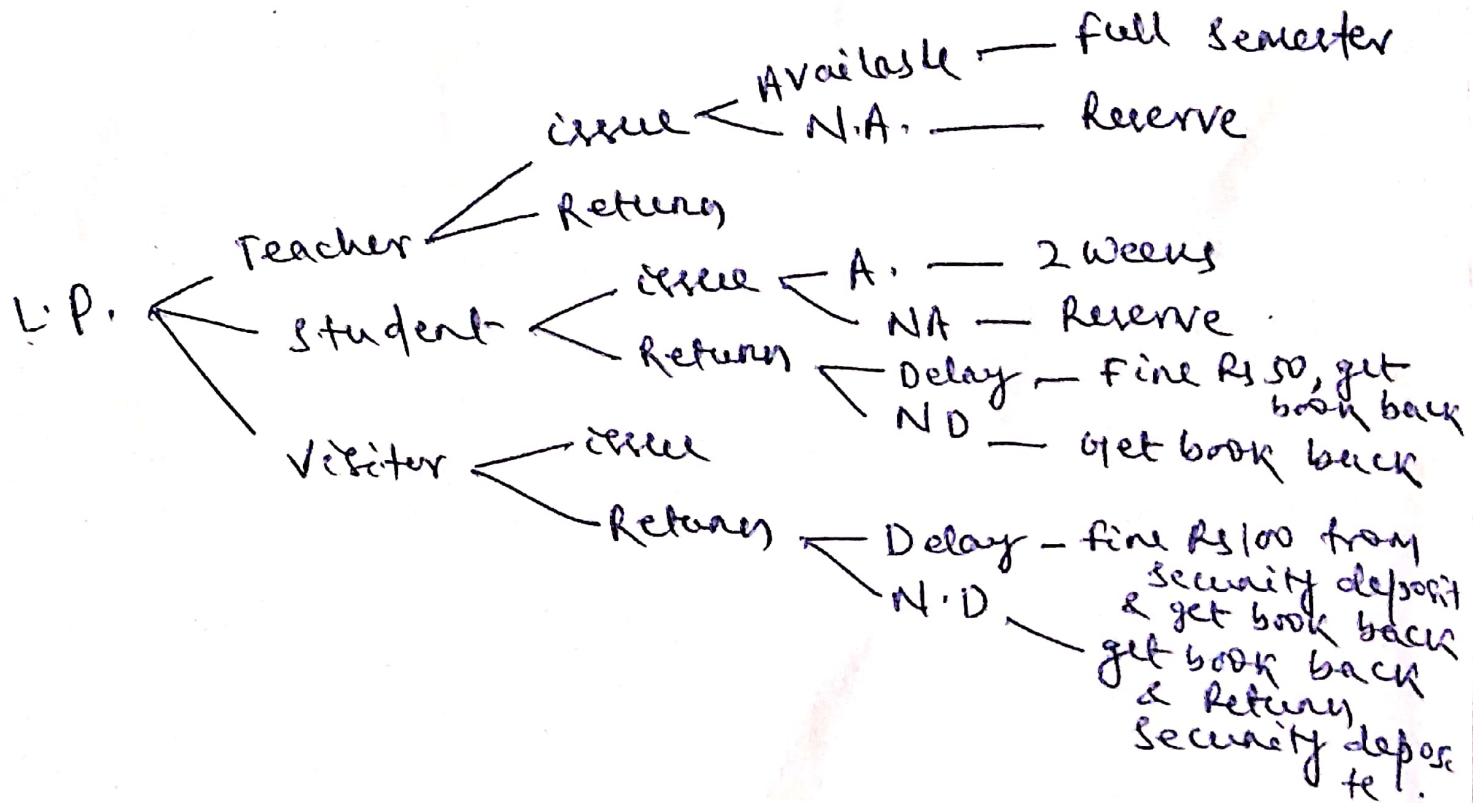 Available — full semester
issue
N.A. — Reserve
Return
Teacher
issue A. — 2 weeks
L.P.
Student
NA — Reserve
Return
Delay — Fine Rs 50, get
book back
ND — get book back
Visitor
issue
Return
Delay — fine Rs 100 from
security deposit
N.D
& get book back
get book back
& Return
Security depos
te.